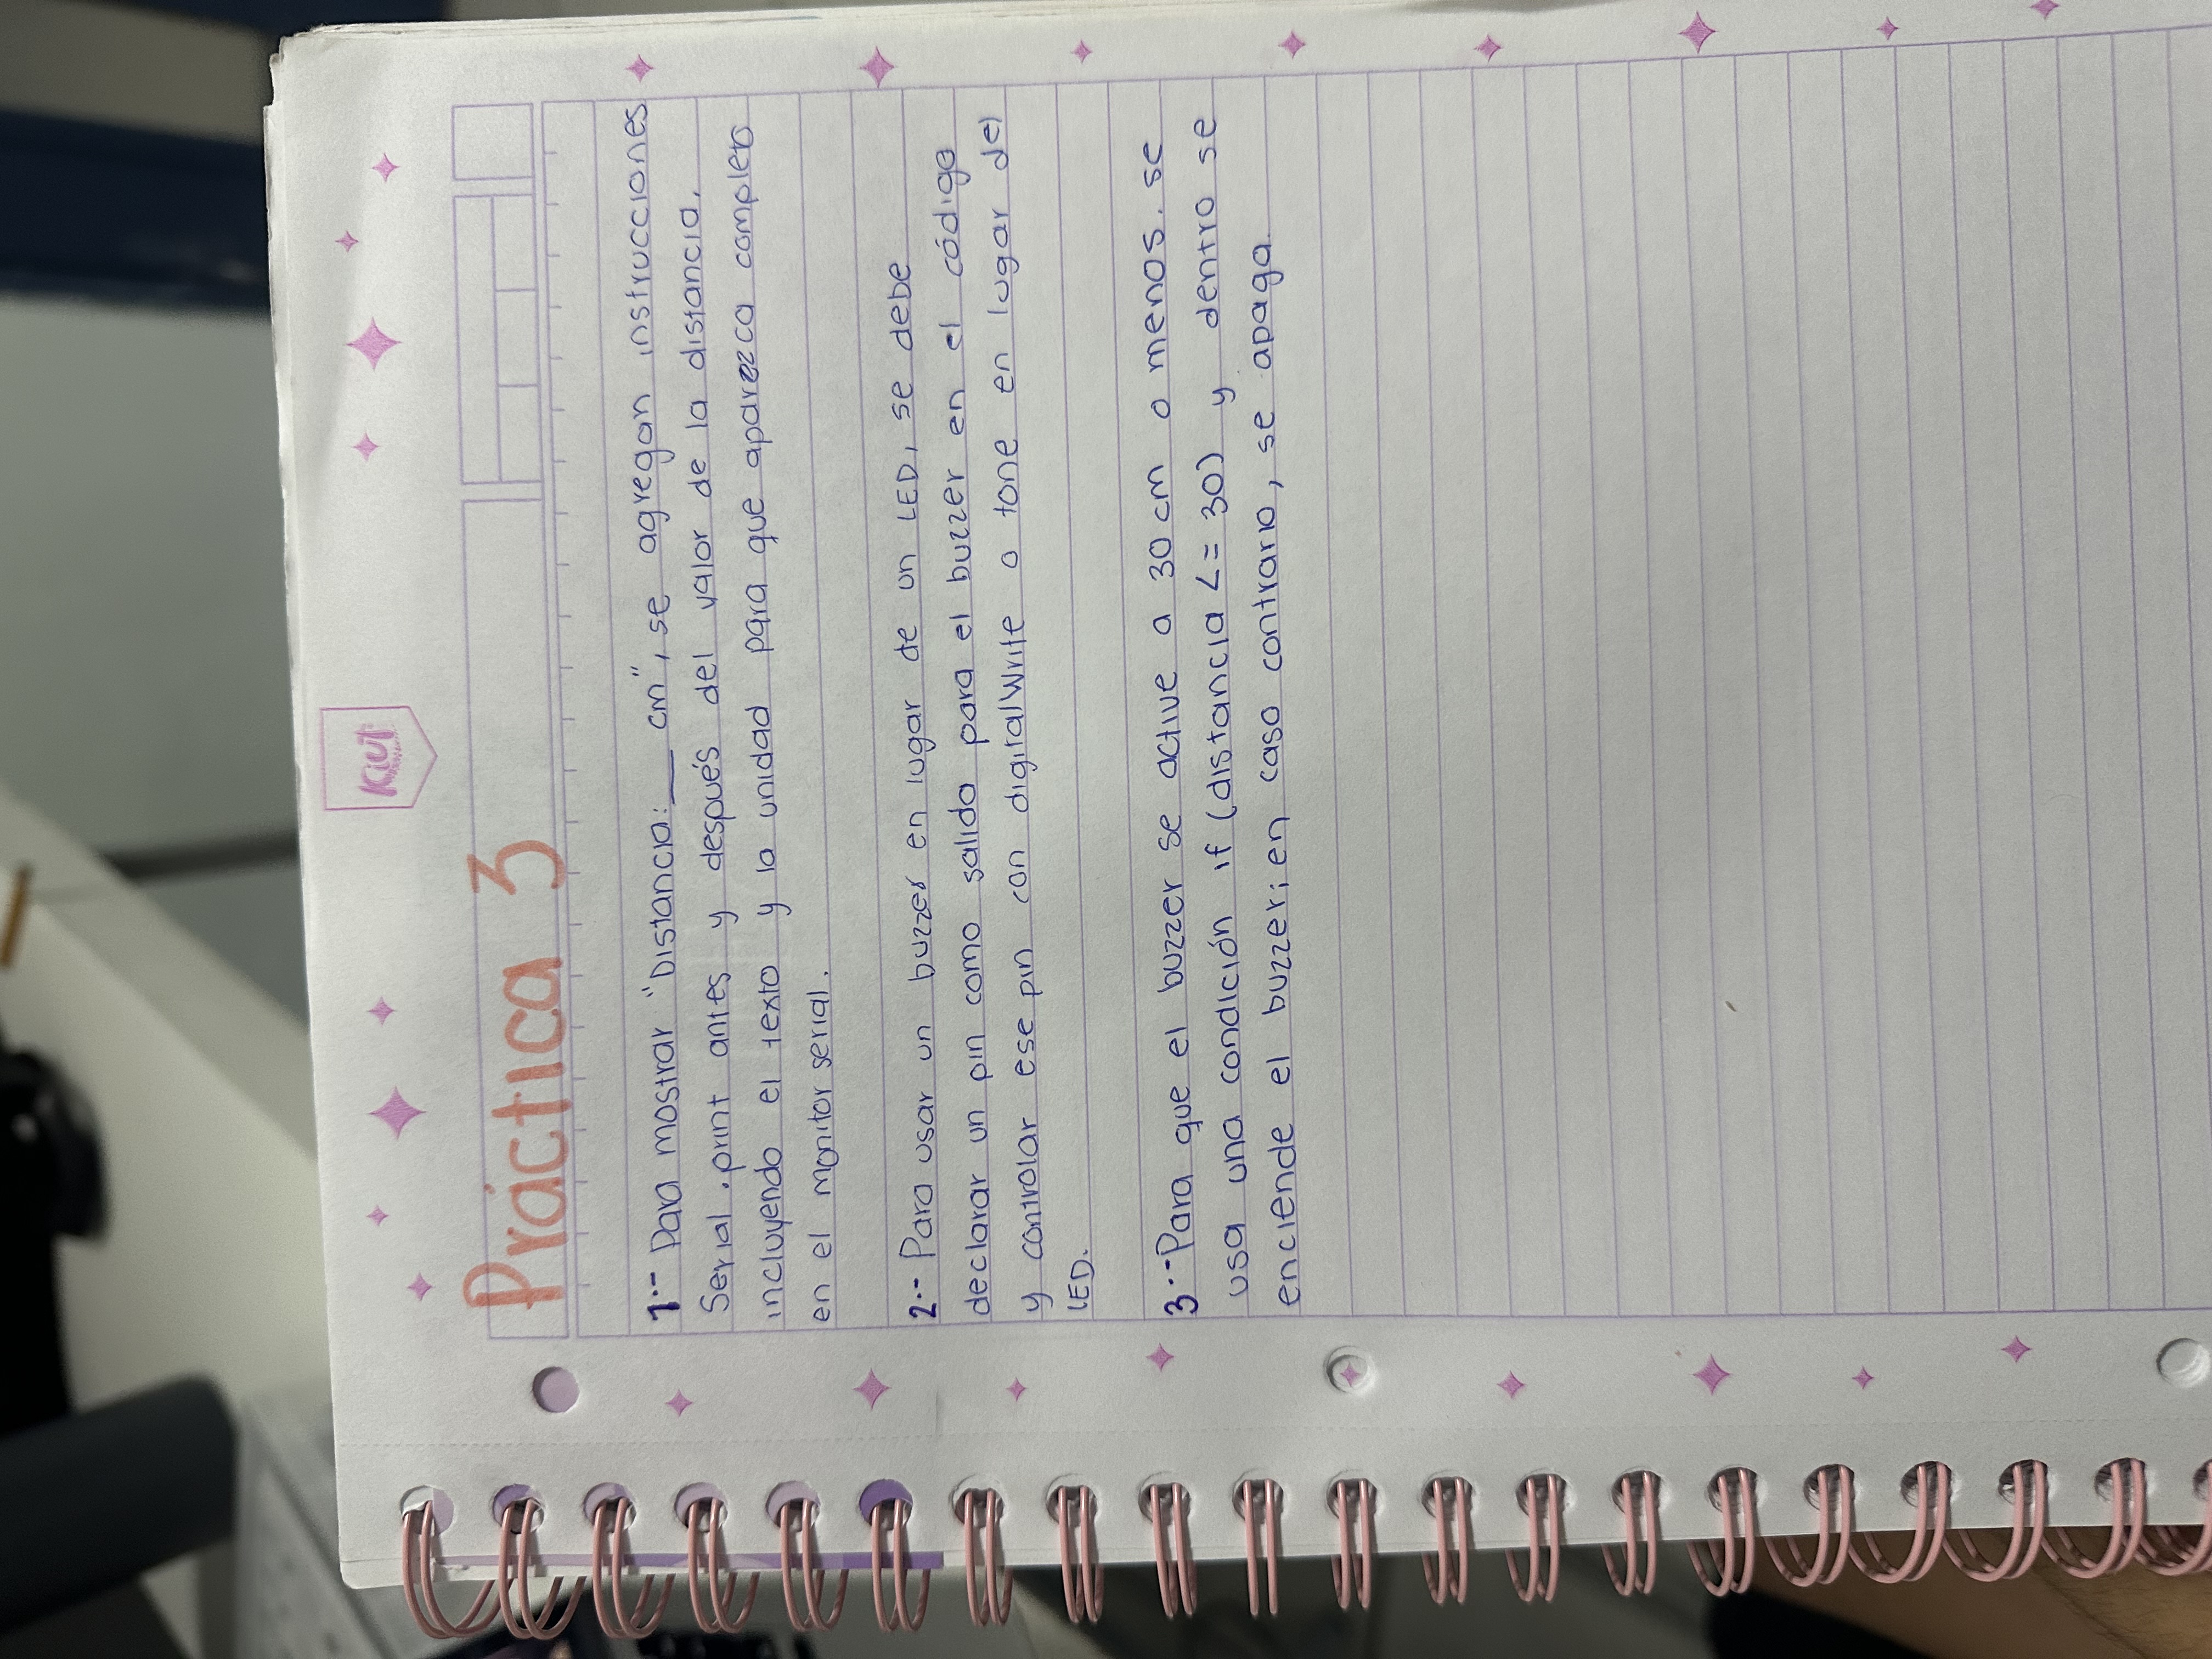 Kiut
Práctica 3
1.- Para mostrar "Distancia: ___ cm", se agregan instrucciones
Serial.print antes y después del valor de la distancia,
incluyendo el texto y la unidad para que aparezca completo
en el monitor serial.
2.- Para usar un buzzer en lugar de un LED, se debe
declarar un pin como salida para el buzzer en el código
y controlar ese pin con digitalWrite o tone en lugar del
LED.
3.- Para que el buzzer se active a 30 cm o menos. se
usa una condición if (distancia <= 30) y dentro se
enciende el buzzer; en caso contrario, se apaga.